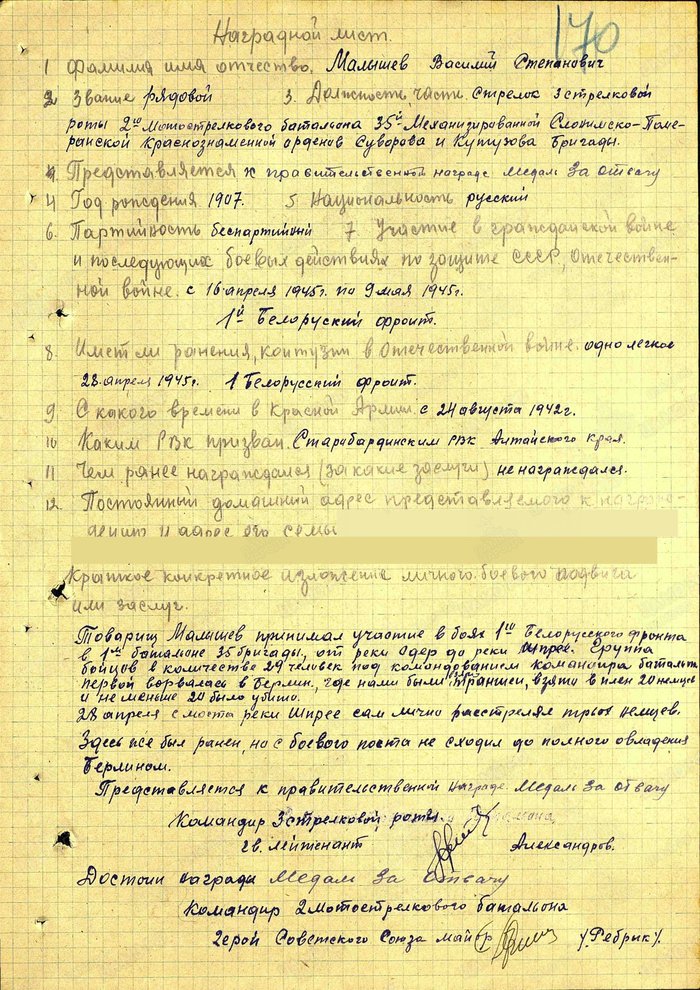 170
Наградной лист.
1 Фамилия имя отчество. Малышев Василий Степанович
2 Звание рядовой 3. Должность, часть. Стрелок 3 стрелковой
роты 2го Мотострелкового батальона 35й Механизированной Слонимско-Поме-
ранской Краснознаменной орденов Суворова и Кутузова бригады.
Представляется к правительственной награде Медаль За отвагу
4 Год рождения 1907. 5 Национальность русский
6. Партийность беспартийный 7 Участие в гражданской войне
и последующих боевых действиях по защите СССР, Отечествен-
ной войне. с 16 апреля 1945г. по 9 мая 1945г.
1й Белоруский фронт.
8. Имет ли ранения, контузии в Отечественной войне. одно легкое
28 апреля 1945г. 1 Белорусский фронт.
9. С какого времени в Красной Армии. с 24 августа 1942г.
10 Каким РВК призван. Старобардинским РВК Алтайского края.
11 Чем ранее награждался (за какие заслуги) не награждался.
12. Постоянный домашний адрес представляемого к награж-
дению и адрес его семьи
Краткое конкретное изложение личного боевого подвига
или заслуг.
Товарищ Малышев принимал участие в боях 1го Белорусского фронта
в 1й батальоне 35 бригады, от реки Одер до реки Шпрее. Группа
бойцов в количестве 29 человек под командованием командира батальона
первой ворвалась в Берлин, где нами были траншеи, взято в плен 20 немцев
и не меньше 20 было убито.
28 апреля с моста реки Шпрее сам лично расстрелял трьох немцев.
Здесь же был ранен, но с боевого поста не сходил до полного овладения
Берлином.
Представляется к правительственной награде Медаль За отвагу
Командир 3 стрелковой роты
гв. лейтенант Александров.
Достоин награды Медаль За отвагу
Командир 2 мотострелкового батальона
Герой Советского Союза майор /Ребрик/.